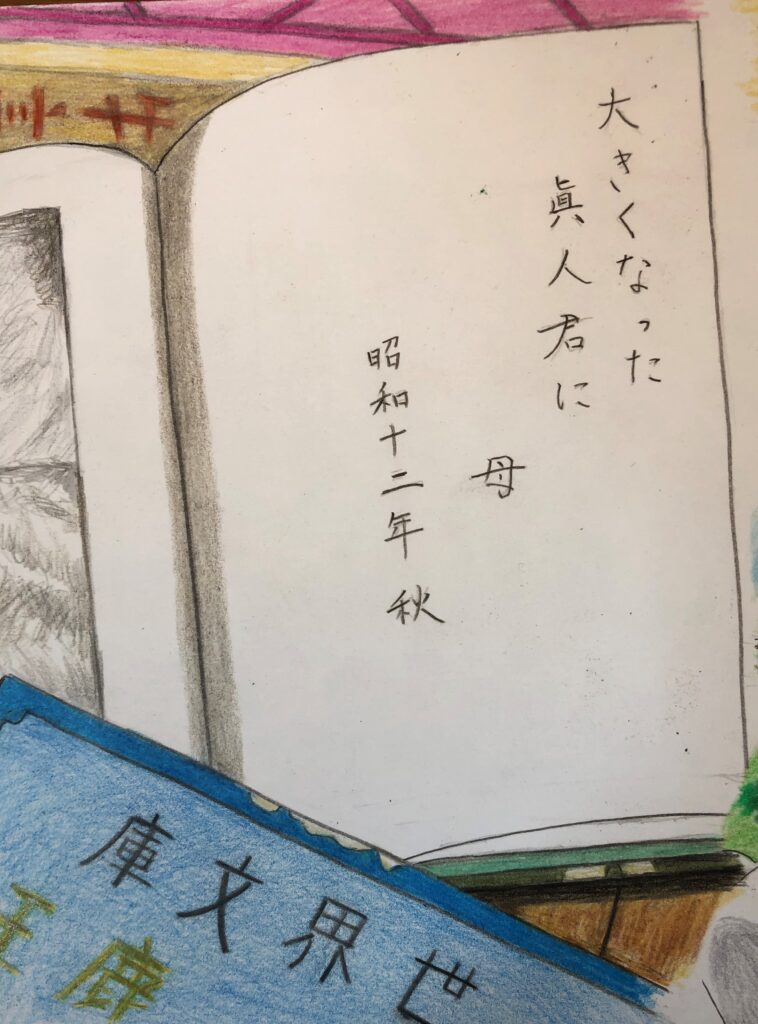 大きくなった
眞人君に
母
昭和十二年 秋
世界文庫
鹿